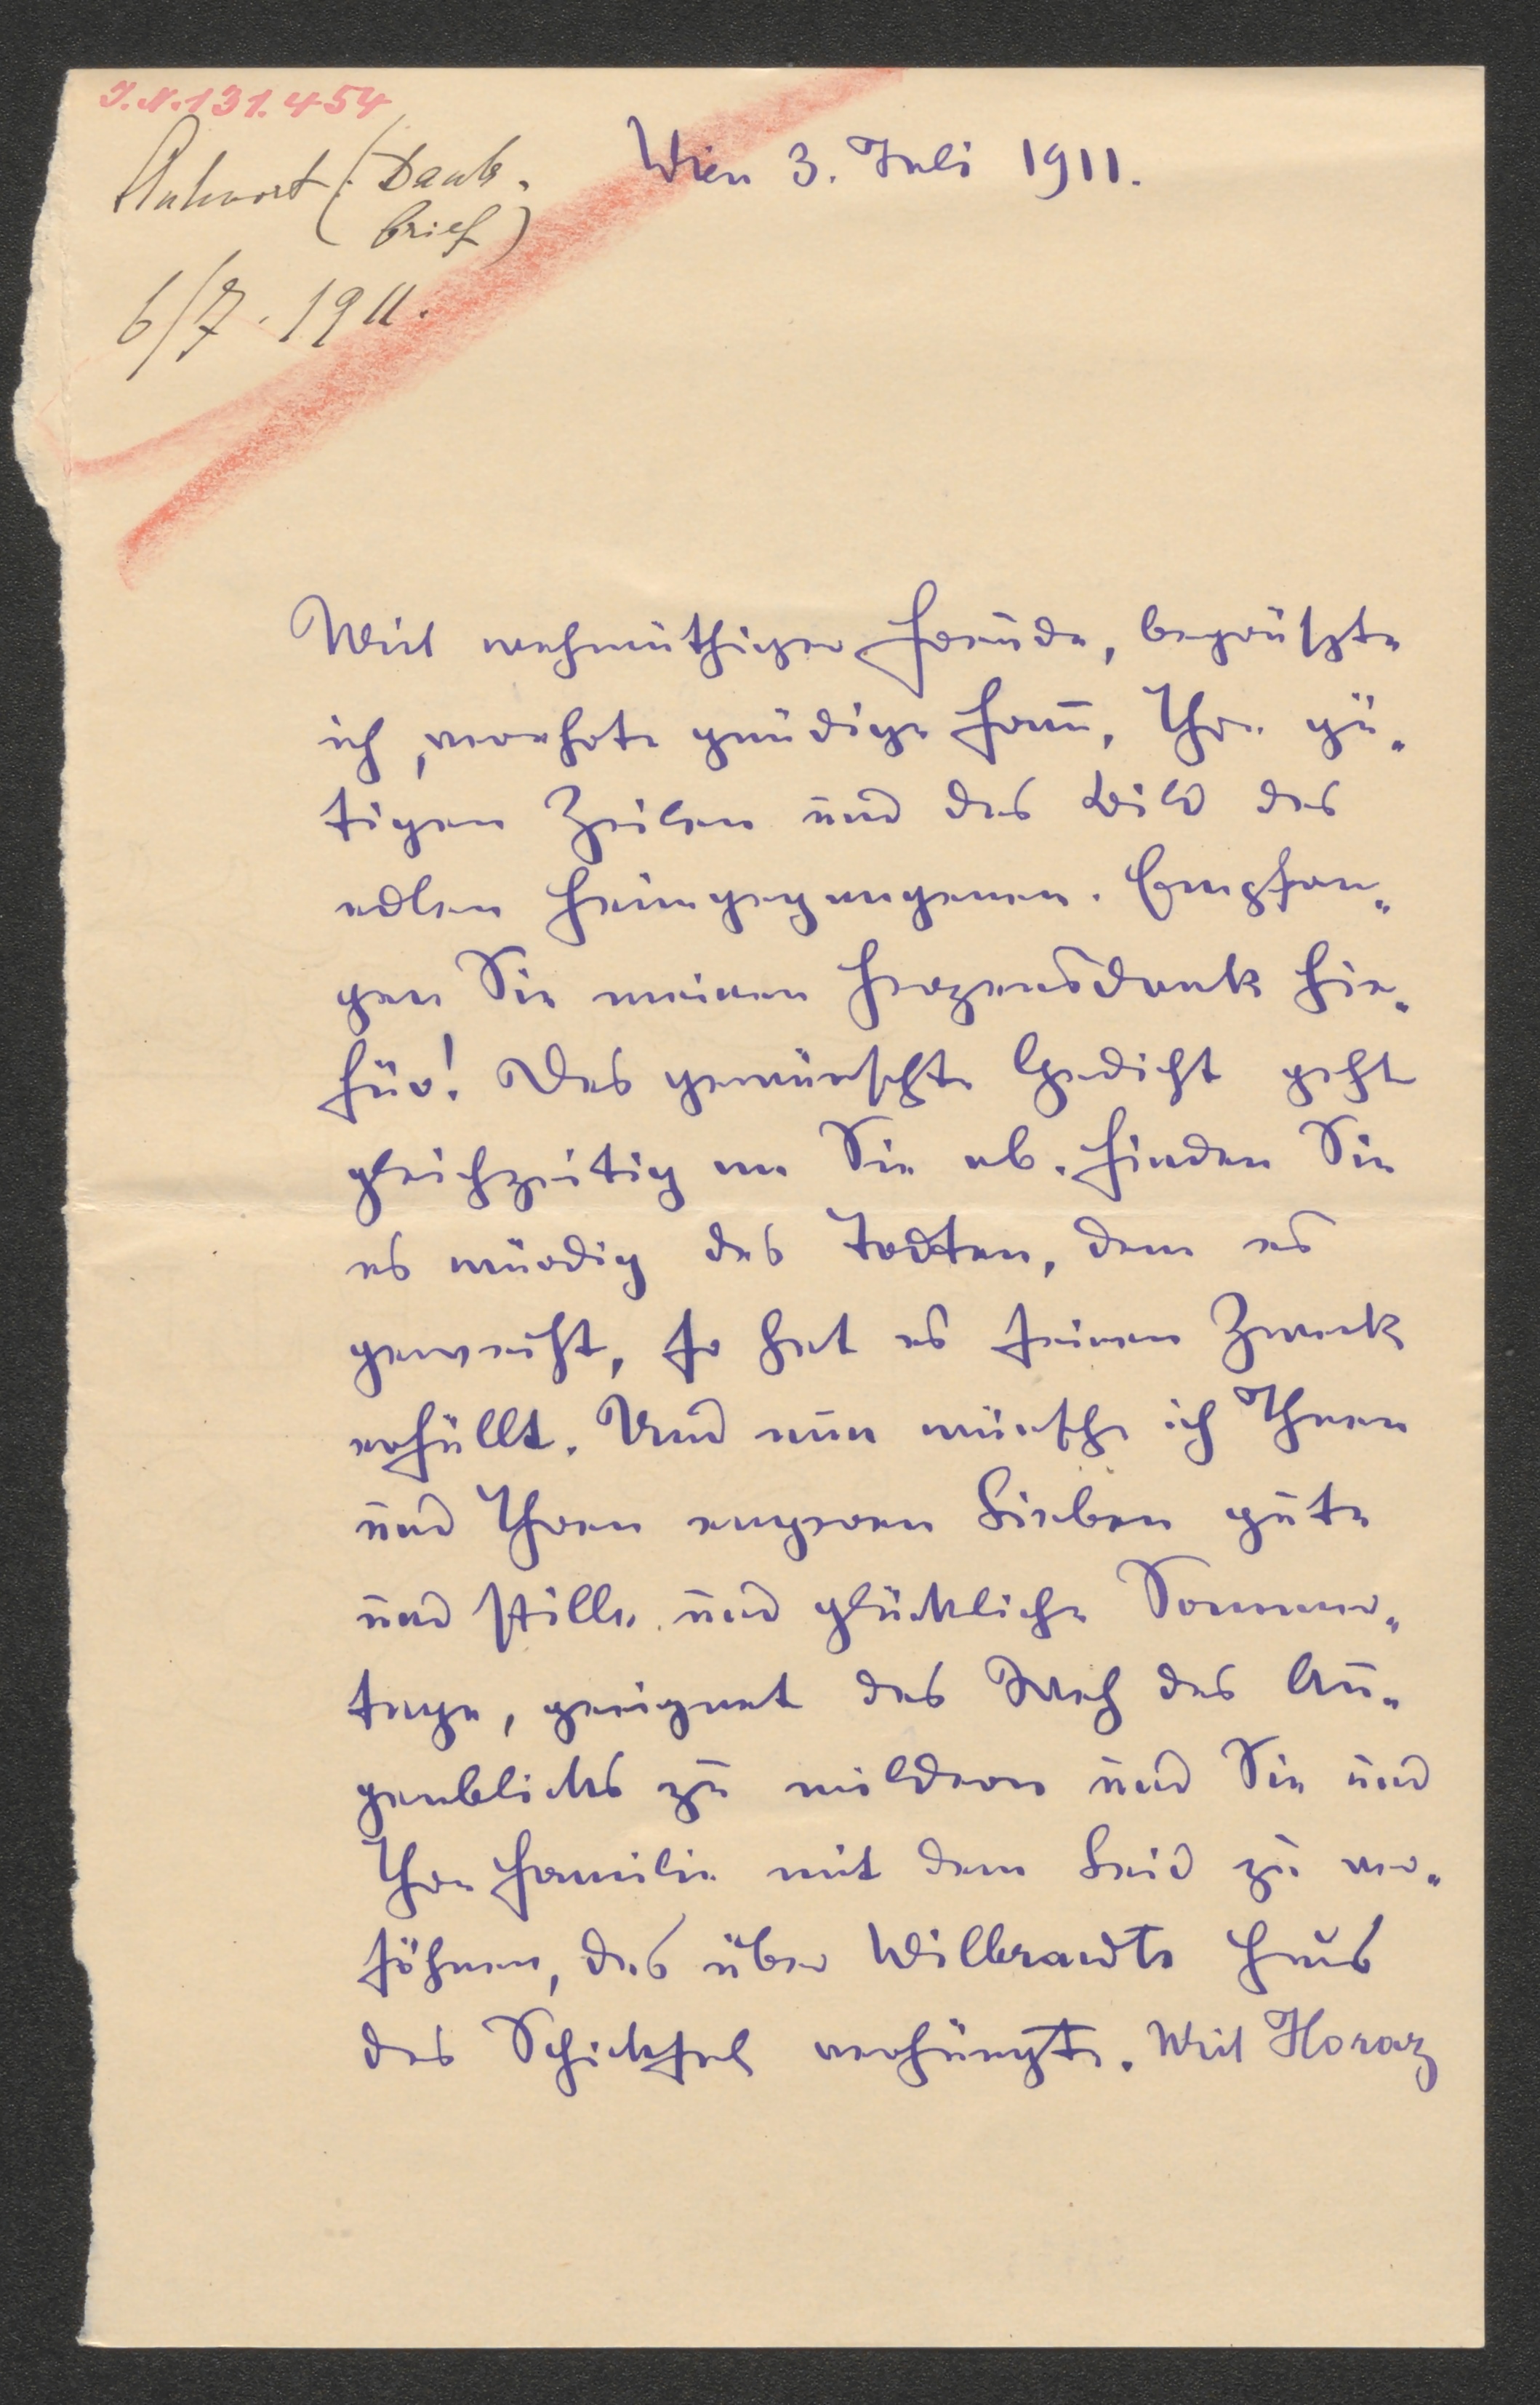 I.N. 131.454
Antwort (Dank-
brief)
6/7. 1911.
Wien 3. Juli 1911.
Mit wehmüthiger Freude, begrüßte
ich, verehrte gnädige Frau, Ihre gü-
tigen Zeilen und das Bild des
edlen Heimgegangenen. Empfan-
gen Sie meinen Herzensdank hie-
für! Das gewünschte Gedicht geht
gleichzeitig an Sie ab. Finden Sie
es würdig des Todten, dem es
geweiht, so hat es seinen Zweck
erfüllt. Und nun wünsche ich Ihnen
und Ihren engeren Lieben gute
und stille und glückliche Sommer-
tage, geeignet das Weh des Au-
genblicks zu mildern und Sie und
Ihre Familie mit dem Leid zu ver-
söhnen, das über Wilbrandts Haus
das Schicksal verhängte. Mit Horaz